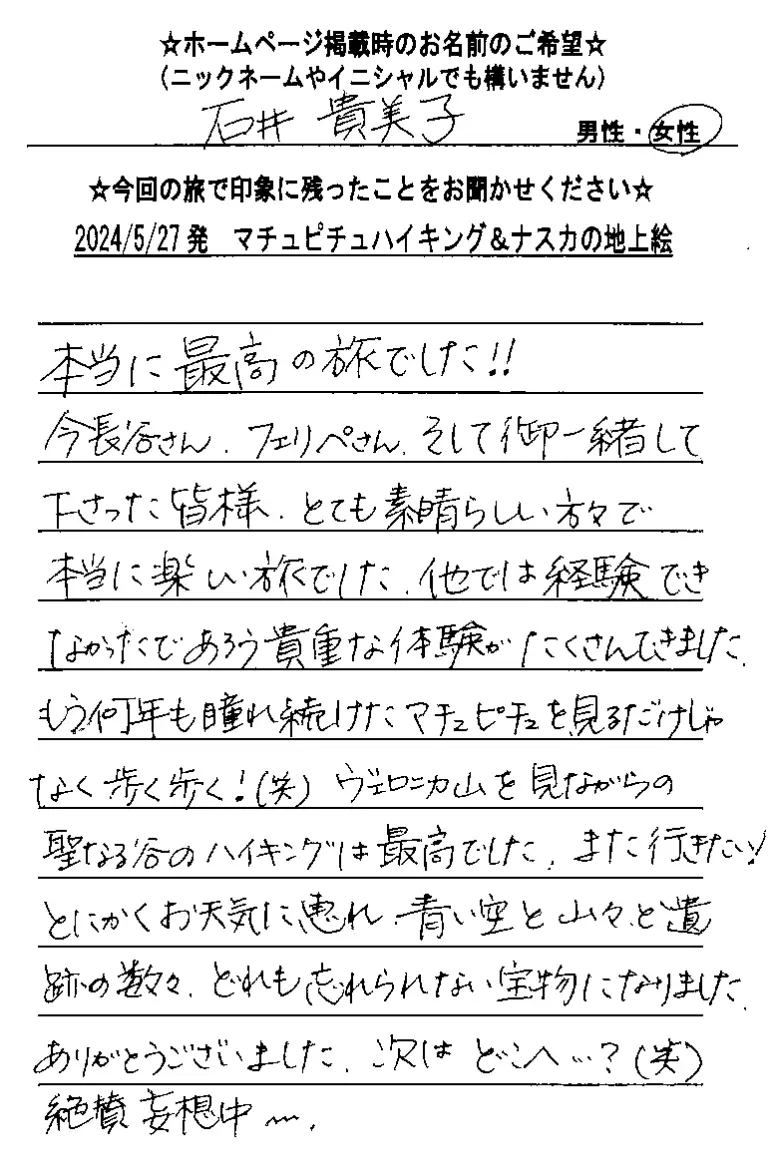 ☆ホームページ掲載時のお名前のご希望☆
(ニックネームやイニシャルでも構いません)
石井 貴美子 男性・女性
☆今回の旅で印象に残ったことをお聞かせください☆
2024/5/27発 マチュピチュハイキング&ナスカの地上絵
本当に最高の旅でした!!
今長谷さん、フェリペさん、そして御一緒して
下さった皆様、とても素晴らしい方々で
本当に楽しい旅でした、他では経験でき
なかったであろう貴重な体験がたくさんできました、
もう何年も瞳れ続けたマチュピチュを見るだけじゃ
なく歩く歩く!(笑) ヴェロニカ山を見ながらの
聖なる谷のハイキングは最高でした、また行きたい!
とにかくお天気に恵れ、青い空と山々と遺
跡の数々、どれも忘れられない宝物になりました、
ありがとうございました、次はどこへ…?(笑)
絶賛妄想中〜、